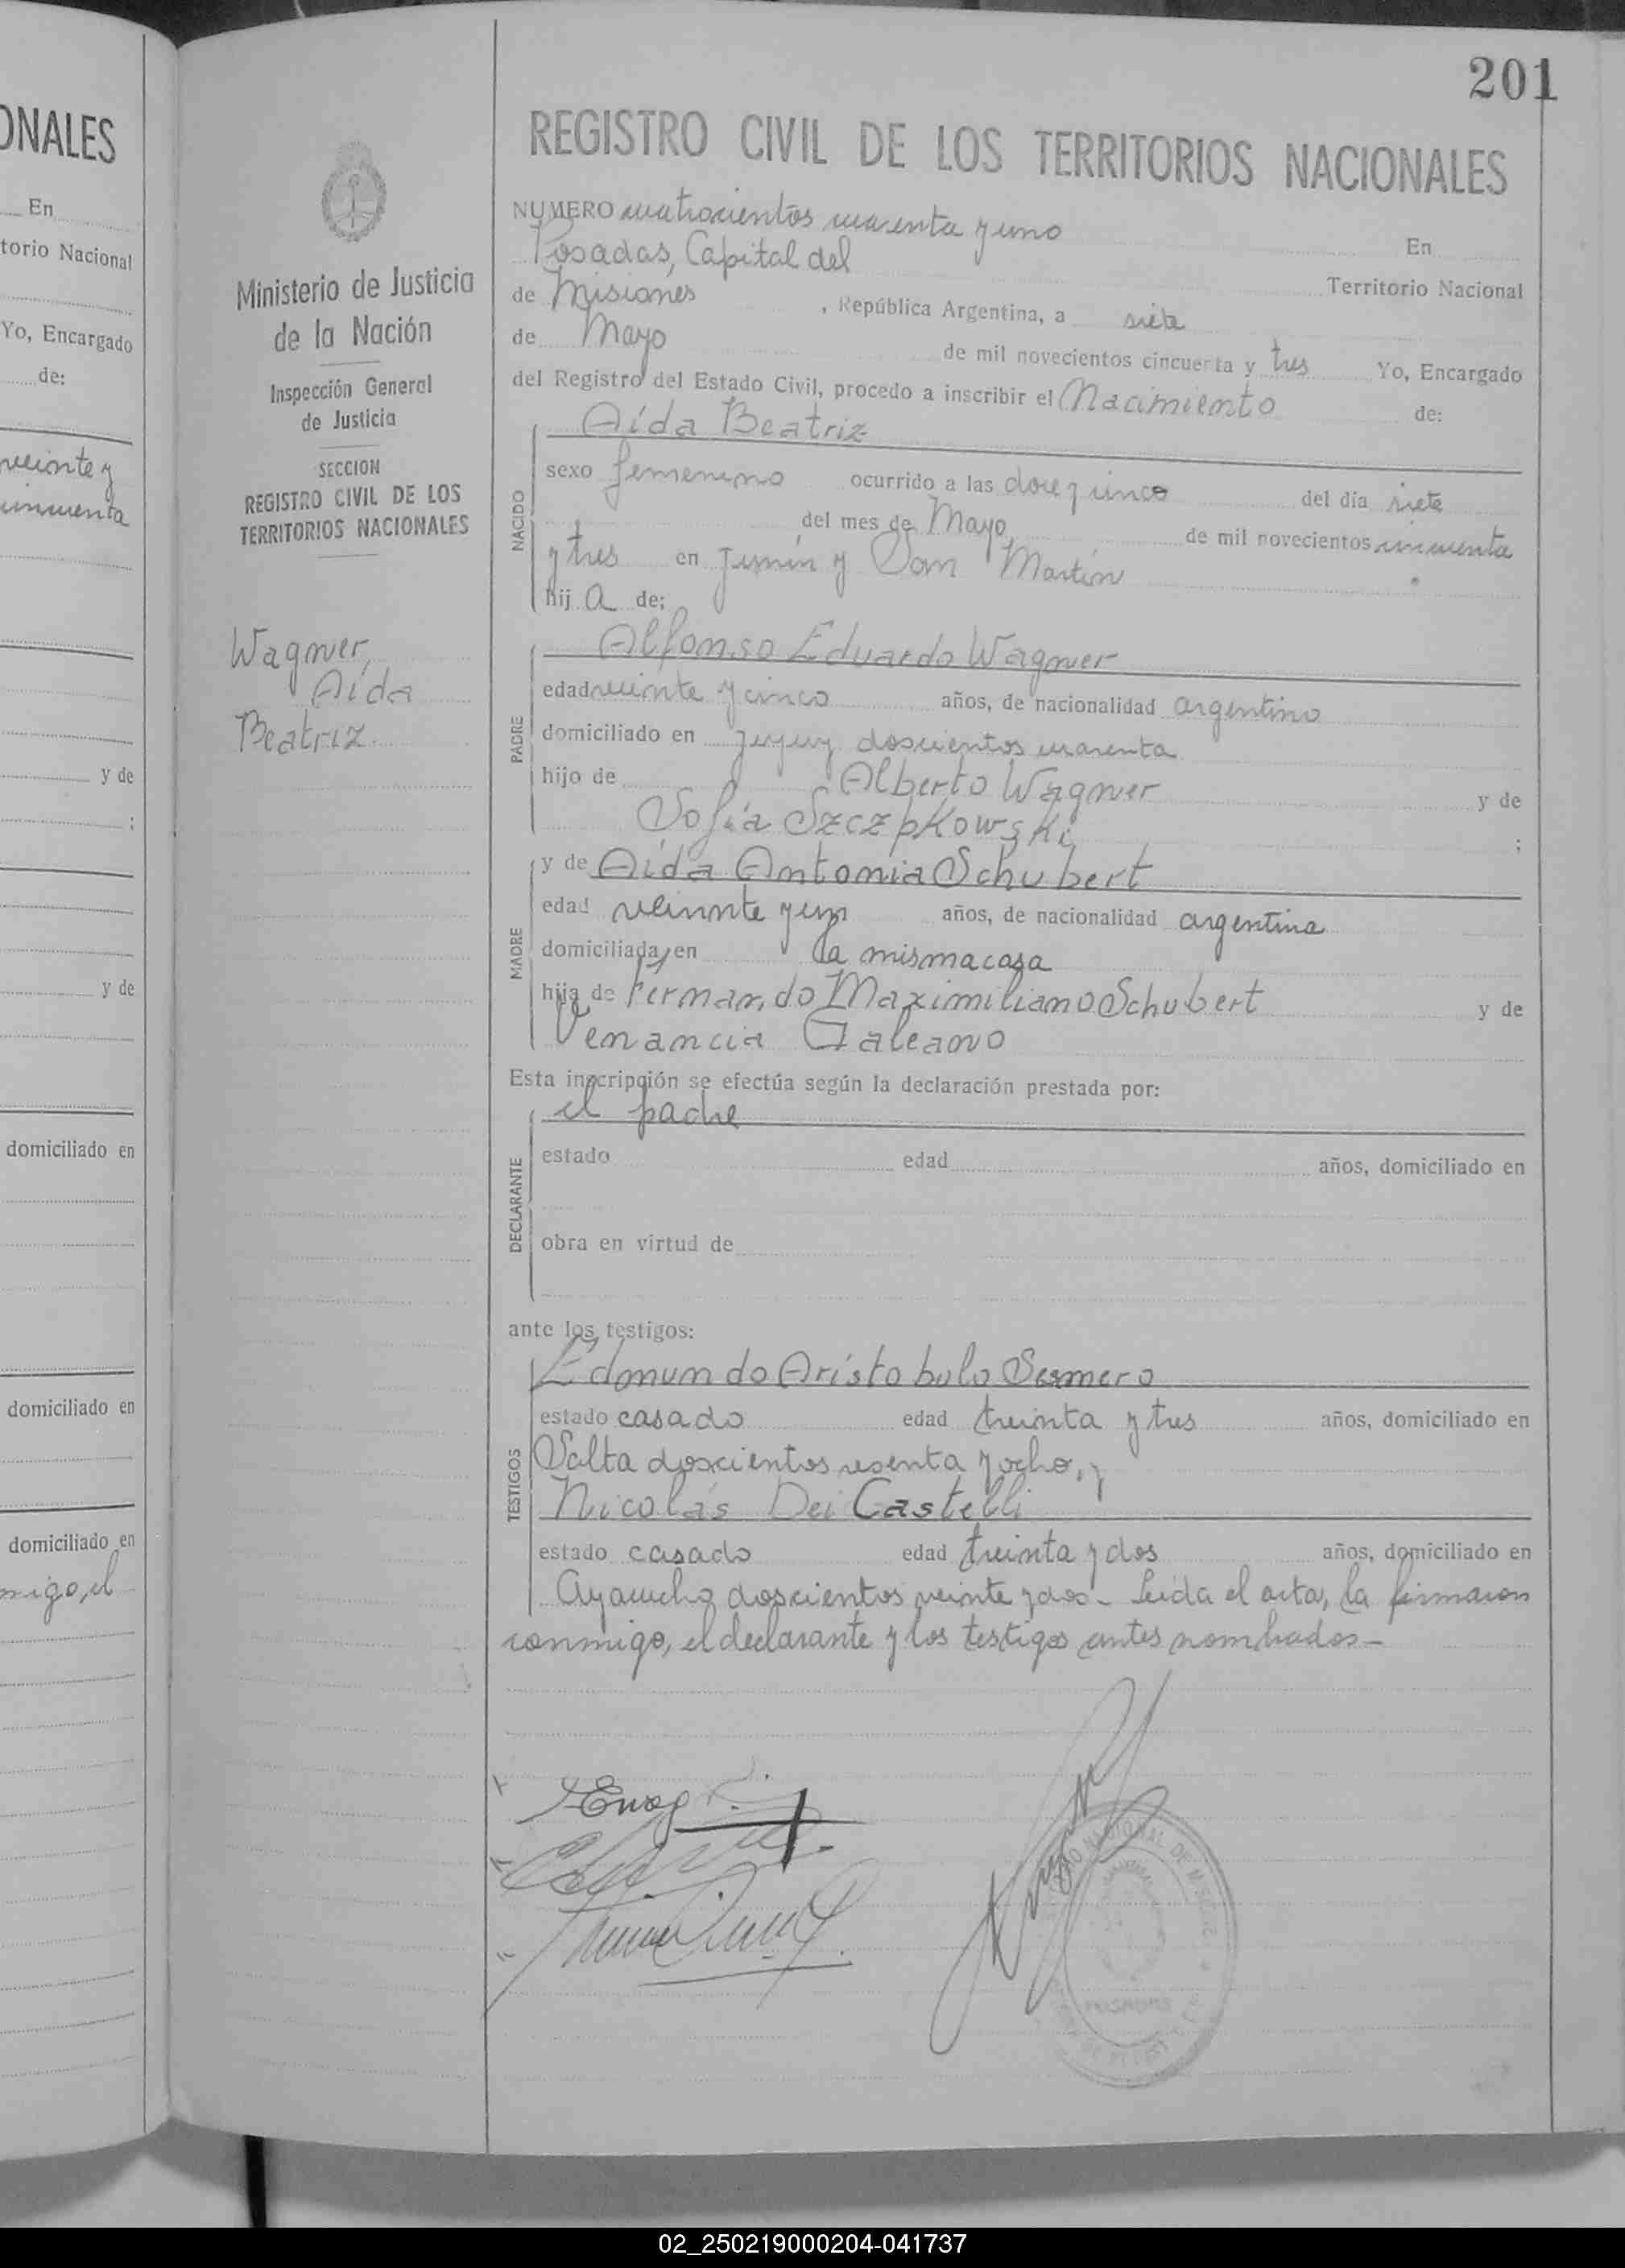 201
ONALES
En
torio Nacional
Yo, Encargado
de:
veinte y
cincuenta
y de
;
y de
domiciliado en
domiciliado en
domiciliado en
migo, el
Ministerio de Justicia
de la Nación
Inspección General
de Justicia
SECCION
REGISTRO CIVIL DE LOS
TERRITORIOS NACIONALES
Wagner,
Aída
Beatriz
REGISTRO CIVIL DE LOS TERRITORIOS NACIONALES
NUMERO cuatrocientos cuarenta y uno En
Posadas, Capital del Territorio Nacional
de Misiones , República Argentina, a siete
de Mayo de mil novecientos cincuenta y tres Yo, Encargado
del Registro del Estado Civil, procedo a inscribir el Nacimiento de:
NACIDO
Aída Beatriz
sexo femenino ocurrido a las doce y cinco del día siete
del mes de Mayo de mil novecientos cincuenta
y tres en Junín y San Martín
hij a de:
PADRE
Alfonso Eduardo Wagner
edad veinte y cinco años, de nacionalidad argentino
domiciliado en Jujuy doscientos cuarenta
hijo de Alberto Wagner y de
Sofía Szczpkowski ;
MADRE
y de Aída Antonia Schubert
edad veinte y un años, de nacionalidad argentina
domiciliada en la misma casa
hija de Fernando Maximiliano Schubert y de
Venancia Galeano
Esta inscripción se efectúa según la declaración prestada por:
DECLARANTE
el padre
estado edad años, domiciliado en
obra en virtud de
ante los testigos:
TESTIGOS
Edmundo Aristobulo Sesmero
estado casado edad treinta y tres años, domiciliado en
Salta doscientos sesenta y ocho, y
Nicolás Dei Castelli
estado casado edad treinta y dos años, domiciliado en
Ayacucho doscientos veinte y dos - Leída el acta, la firmaron
conmigo, el declarante y los testigos antes nombrados -
NACIONAL DE MISIONES
POSADAS
02_250219000204-041737